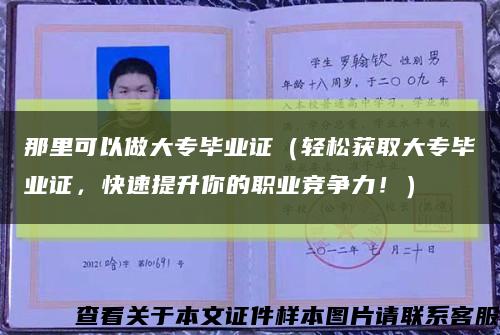 学生 罗翰钦 性别 男
年龄十八周岁，于二〇〇九年
那里可以做大专毕业证（轻松获取大专毕
业证，快速提升你的职业竞争力！）
2012(哈)字 第101691号
二〇一二年 七月二十日
查看关于本文证件样本图片请联系客服